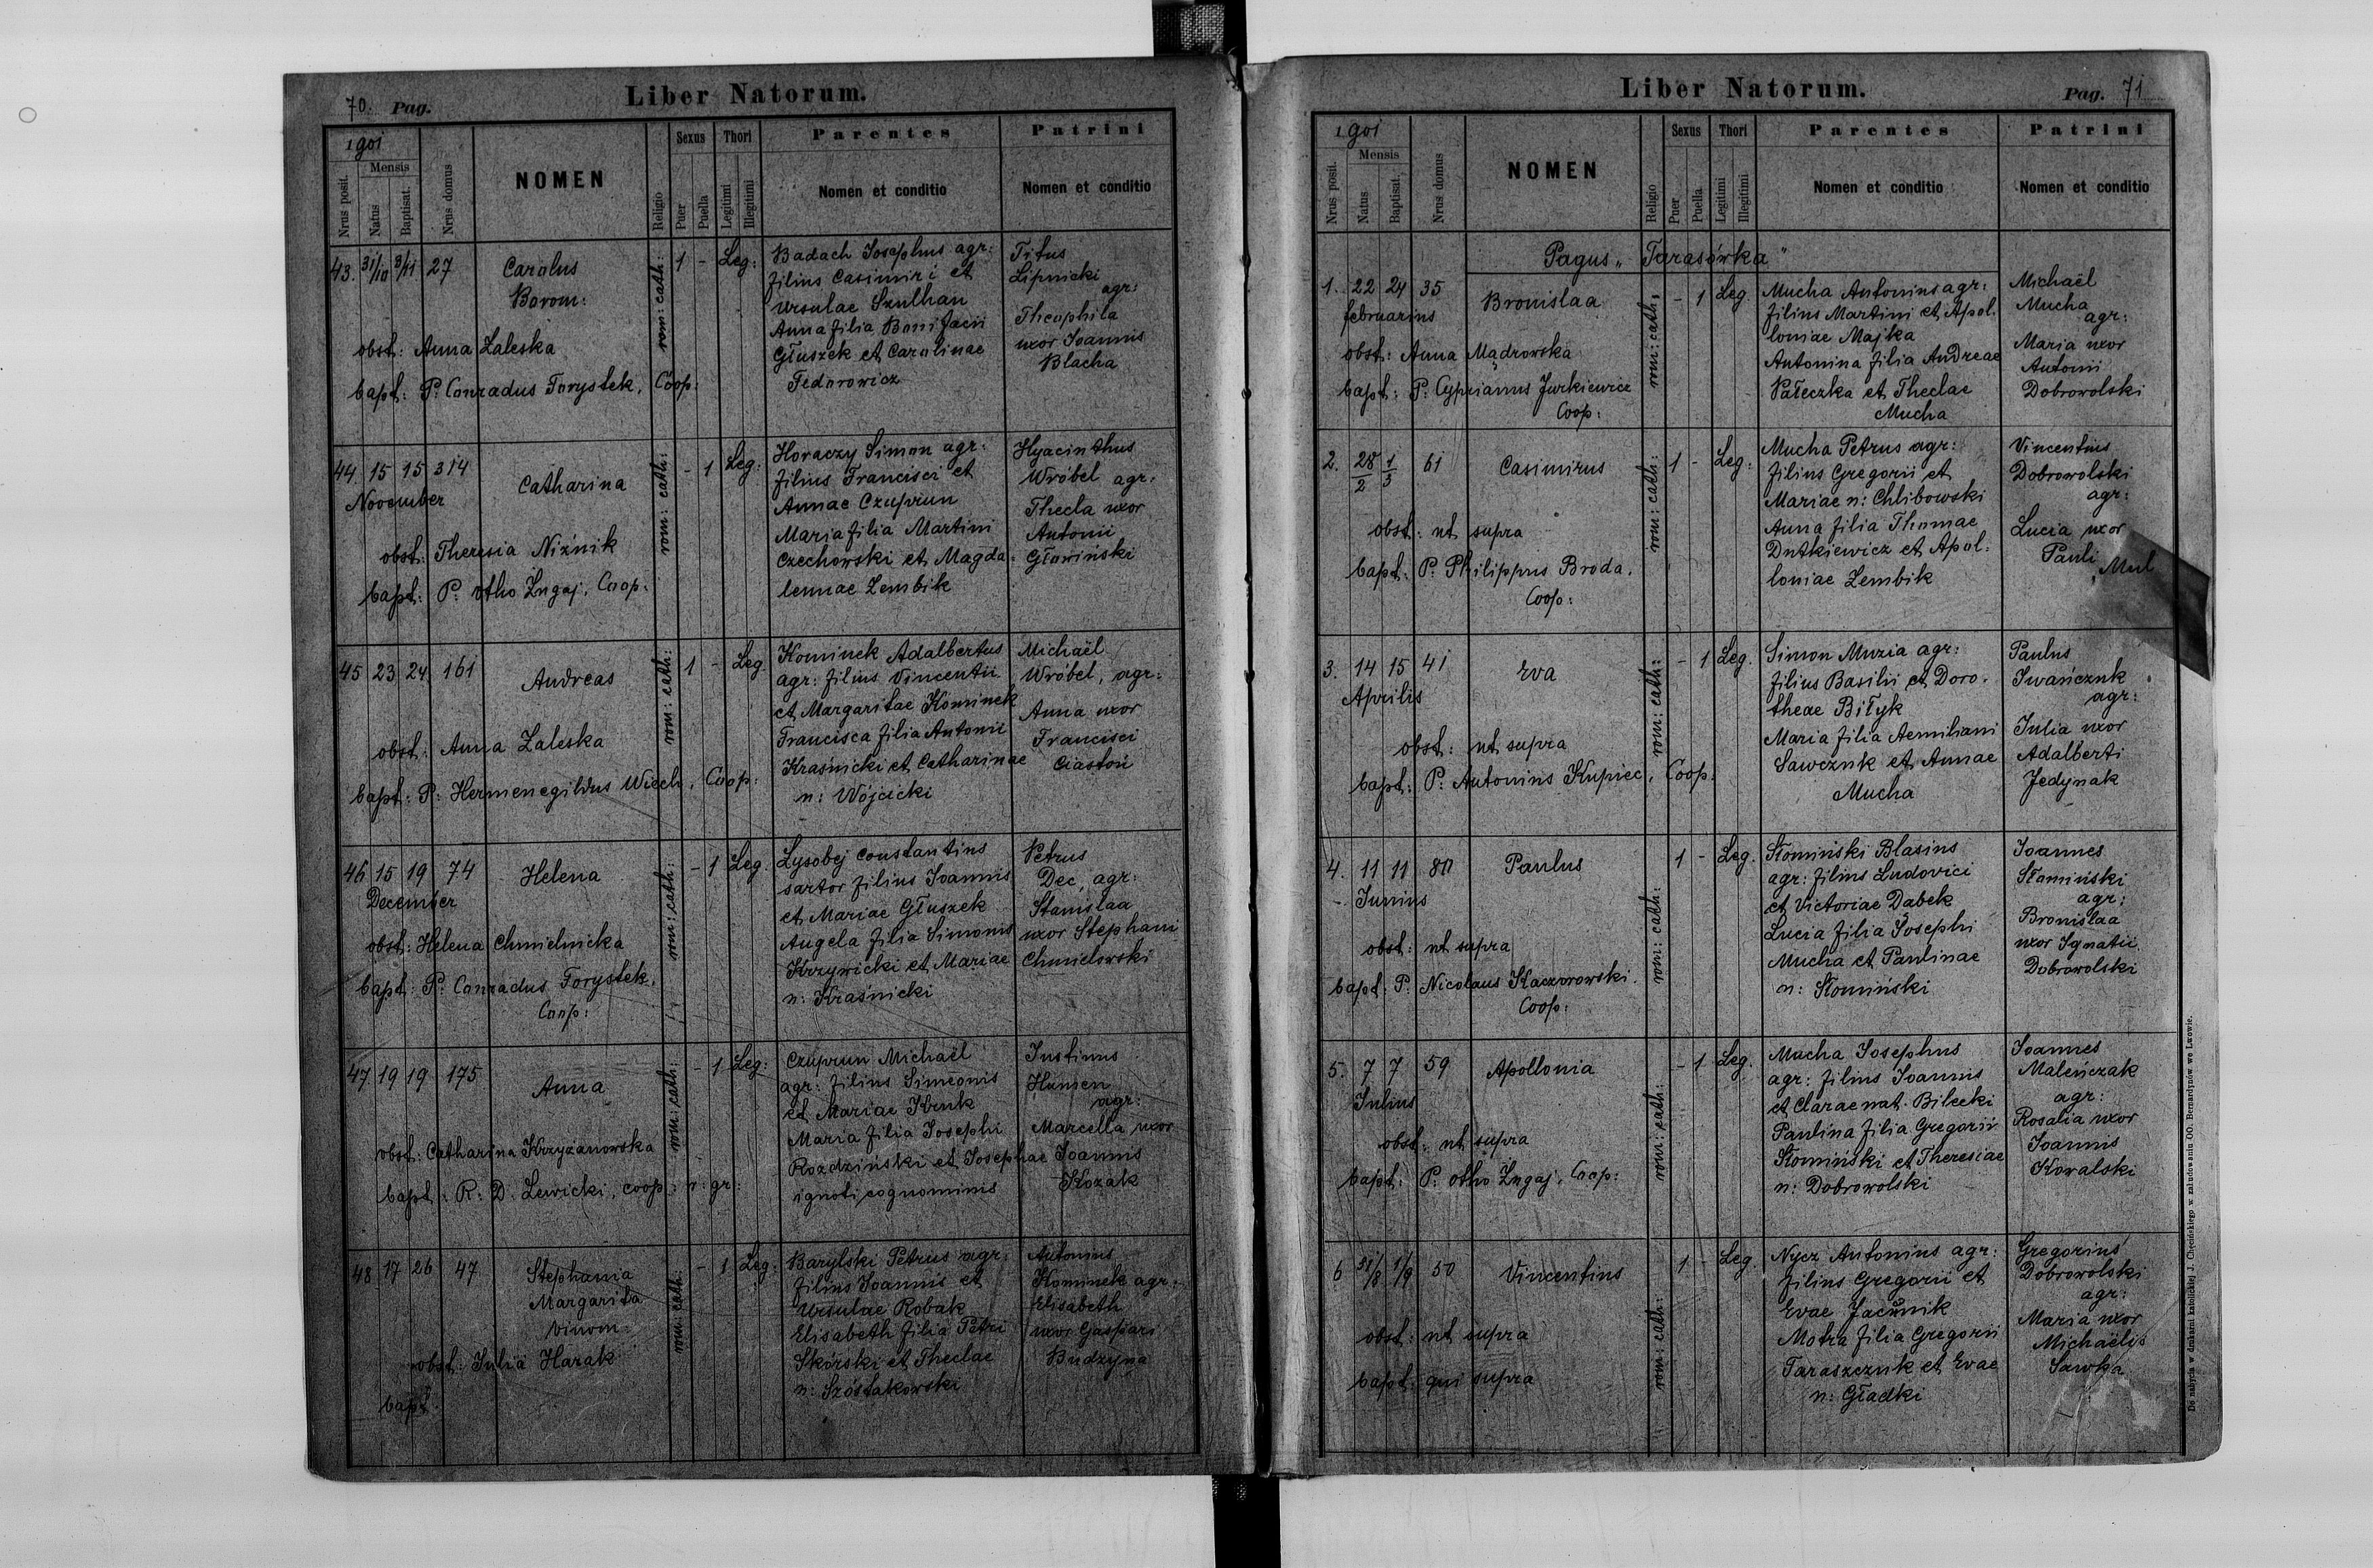 70. Pag.
Liber Natorum.
1901
Nrus posit.
Mensis
Natus
Baptisat.
Nrus domus
NOMEN
Religio
Sexus
Puer
Puella
Thori
Legitimi
Illegitimi
Parentes
Nomen et conditio
Patrini
Nomen et conditio
43. 31/10 3/11 27
Carolus
Borom:
obst: Anna Zaleska
bapt: P. Conradus Forystek, Coop:
rom: cath:
1 - Leg:
Badach Josephus agr:
filius Casimiri et
Ursulae Szulhan
Anna filia Bonifacii
Głuszek et Carolinae
Fedorowicz
Titus
Lipnicki
agr:
Theophila
uxor Joannis
Blacha
44 15 15 314
November
Catharina
obst: Theresia Niźnik
bapt: P. Otho Zugaj, Coop:
rom: cath:
- 1 Leg:
Horaczy Simon agr:
filius Francisci et
Annae Czuprun
Maria filia Martini
Czechowski et Magda-
lennae Zembik
Hyacinthus
Wróbel agr:
Thecla uxor
Antonii
Głowiński
45 23 24 161
Andreas
obst: Anna Zaleska
bapt: P. Hermenegildus Wiech, Coop:
rom: cath:
1 - Leg
Kominek Adalbertus
agr: filius Vincentii
et Margaritae Kominek
Francisca filia Antonii
Kraśnicki et Catharinae
n: Wójcicki
Michaël
Wróbel, agr:
Anna uxor
Francisci
Ciastoń
46 15 19 74
December
Helena
obst: Helena Chmielnicka
bapt: P. Conradus Forystek,
Coop:
rom: cath:
- 1 Leg.
Lysobej Constantius
sartor filius Joannis
et Mariae Głuszek
Angela filia Simonis
Krzywicki et Mariae
n: Kraśnicki
Petrus
Dec, agr:
Stanislaa
uxor Stephani
Chmielowski
47 19 19 175
Anna
obst: Catharina Krzyzanowska
bapt: R. D. Lewicki, coop: r: gr:
rom: cath:
- 1 Leg:
Czuprun Michaël
agr: filius Simeonis
et Mariae Kruk
Maria filia Josephi
Rozdzinski et Josephae
ignoti cognominis
Justinus
Humen
agr:
Marcella uxor
Joannis
Kozak
48 17 26 47
Stephania
Margarita
binom:
obst: Julia Harak
bapt:
rom: cath:
- 1 Leg:
Barylski Petrus agr:
filius Joannis et
Ursulae Robak
Elisabeth filia Petri
Skórski et Theclae
n: Szóstakowski
Antonius
Kominek agr:
Elisabeth
uxor Gaspari
Budzyna
Liber Natorum.
Pag. 71
1901
Nrus posit.
Mensis
Natus
Baptisat.
Nrus domus
NOMEN
Religio
Sexus
Puer
Puella
Thori
Legitimi
Illegitimi
Parentes
Nomen et conditio
Patrini
Nomen et conditio
Pagus „Tarasówka"
1. 22 24 35
februarius
Bronislaa
obst: Anna Mądrowska
bapt: P. Cyprianus Jurkiewicz
Coop:
rom: cath:
- 1 Leg.
Mucha Antonius agr:
filius Martini et Apol-
loniae Majka
Antonina filia Andreae
Pałeczka et Theclae
Mucha
Michaël
Mucha
agr:
Maria uxor
Antonii
Dobrowolski
2. 28/2 1/3 61
Casimirus
obst: ut supra
bapt: P. Philippus Broda,
Coop:
rom: cath:
1 - Leg:
Mucha Petrus agr:
filius Gregorii et
Mariae n: Chlibowski
Anna filia Thomae
Dutkiewicz et Apol-
loniae Zembik
Vincentius
Dobrowolski
agr:
Lucia uxor
Pauli
Mul
3. 14 15 41
Aprilis
Eva
obst: ut supra
bapt: P. Antonius Kupiec, Coop:
rom: cath:
- 1 Leg.
Simon Muzia agr:
filius Basilii et Doro-
theae Biłyk
Maria filia Aemiliani
Sawczuk et Annae
Mucha
Paulus
Iwańczuk
agr:
Julia uxor
Adalberti
Jedynak
4. 11 11 80
Junius
Paulus
obst: ut supra
bapt: P. Nicolaus Kaczorowski,
Coop:
rom: cath:
1 - Leg.
Słomiński Blasius
agr: filius Ludovici
et Victoriae Dabek
Lucia filia Josephi
Mucha et Paulinae
n: Słomiński
Joannes
Słamiński
agr:
Bronislaa
uxor Ignatii
Dobrowolski
5. 7 7 59
Julius
Apollonia
obst: ut supra
bapt: P. Otho Zugaj, Coop:
rom: cath:
- 1 Leg.
Mucha Josephus
agr: filius Joannis
et Clarae nat. Bilecki
Paulina filia Gregorii
Słomiński et Theresiae
n: Dobrowolski
Joannes
Maleńczak
agr:
Rosalia uxor
Joannis
Kowalski
6 31/8 1/9 50
Vincentius
obst: ut supra
bapt: qui supra
rom: cath:
1 - Leg.
Nycz Antonius agr:
filius Gregorii et
Evae
Motra filia Gregorii
Taraszczuk et Evae
n: Gładki
Gregorius
Dobrowolski
agr:
Maria uxor
Michaëlis
Sawka
Do nabycia w drukarni katolickiej J. Chęcińskiego w zabudowaniu OO. Bernardynów we Lwowie.